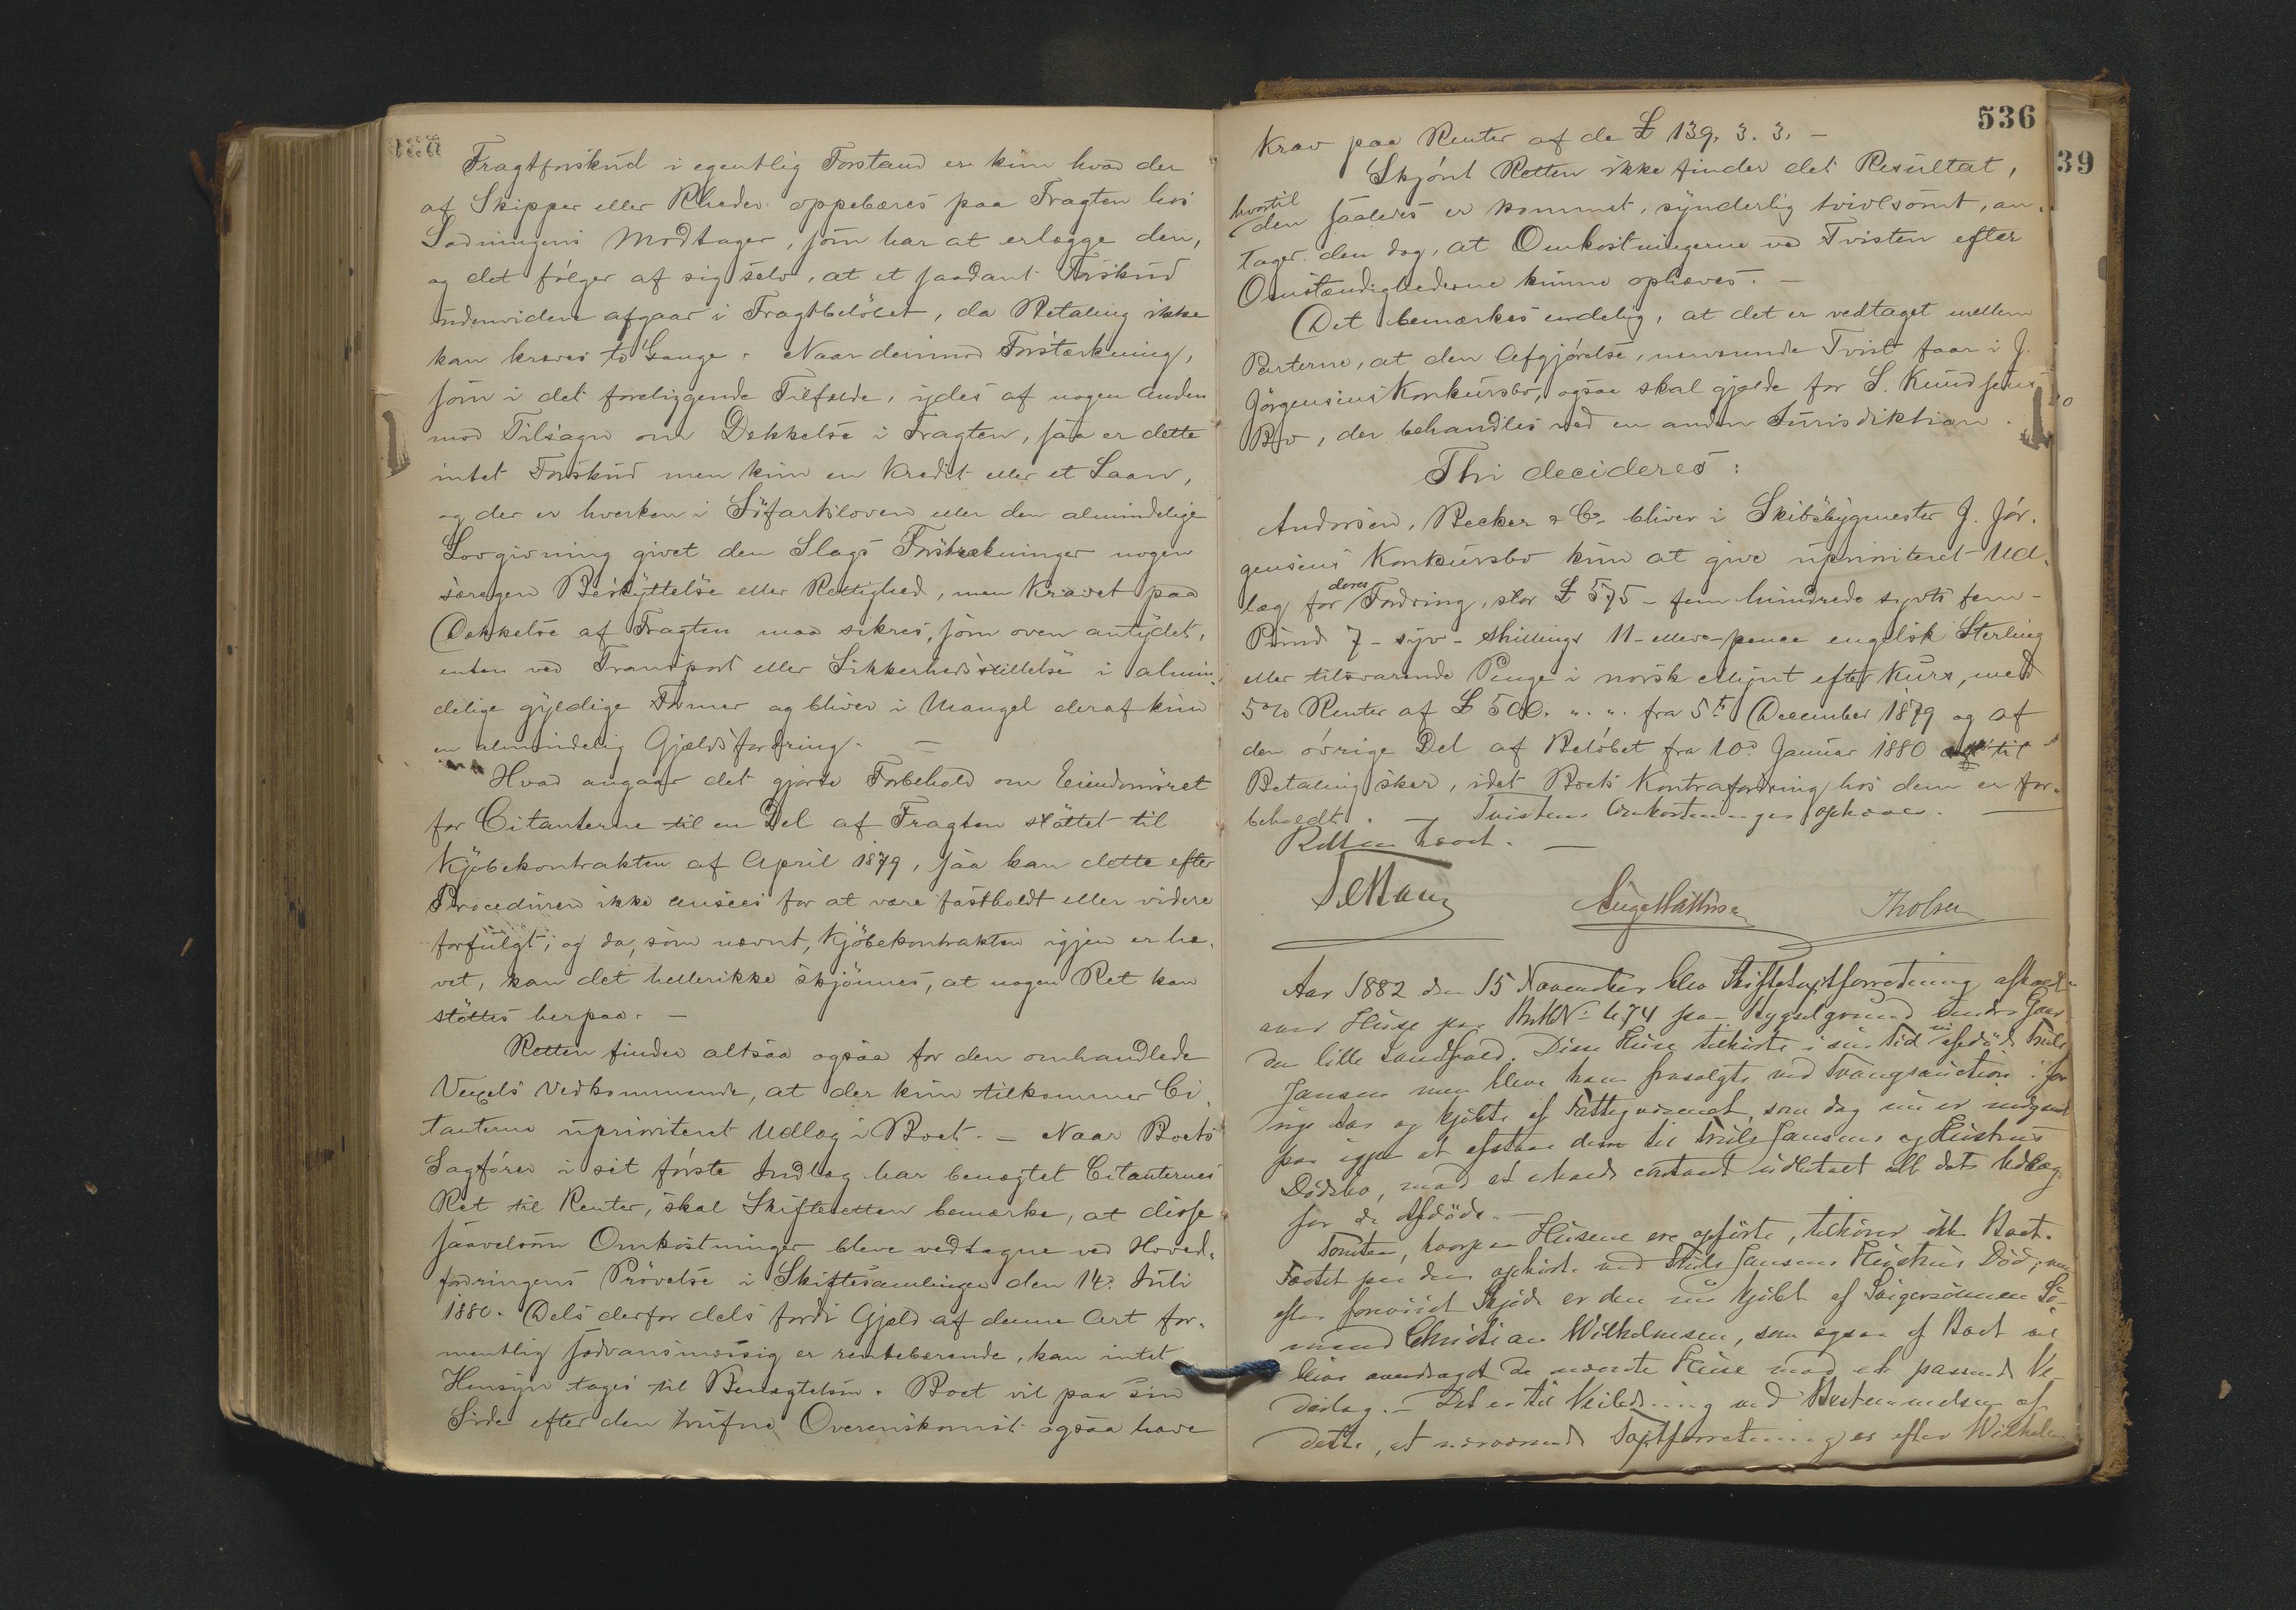 Fragtforskud i egentlig Forstand er kun hvad der
af Skipper eller Rheder oppebæres paa Fragten hos
Ladningens Modtager, som har at erlægge den,
og det følger af sig selv, at et saadant Forskud
udenvidere afgaar i Fragtbeløbet, da Betaling ikke
kan kræves to Gange. Naar derimod Forstærkning,
som i det foreliggende Tilfælde, ydes af nogen anden
mod Tilsagn om Dekkelse i Fragten, saa er dette
intet Forskud men kun en Kredit eller et Laan,
og der er hverken i Søfartsloven eller den almindelige
Lovgivning givet den Slags Forstrækninger nogen
særegen Beskyttelse eller Rettighed, men Kravet paa
Dekkelse af Fragten maa sikres, som oven antydet,
enten ved Transport eller Sikkerhedsstillelse i almin-
delige gyldige Former og bliver i Mangel deraf kun
en almindelig Gjældsfordring. —
Hvad angaar det gjorte Forbehold om Eiendomsret
for Citanterne til en Del af Fragten støttet til
Kjøbekontrakten af April 1879, saa kan dette efter
Proceduren ikke ansees for at være fastholdt eller videre
forfulgt; og da, som nævnt, Kjøbekontrakten igjen er hæ-
vet, kan det hellerikke skjønnes, at nogen Ret kan
støttes herpaa. —
Retten finder altsaa ogsaa for den omhandlede
Vexels Vedkommende, at der kun tilkommer Ci-
tanterne uprioriteret Udlæg i Boet. — Naar Boets
Sagfører i sit første Indlæg har benægtet Citanternes
Ret til Renter, skal Skifteretten bemærke, at disse
saavelsom Omkostninger bleve vedtagne ved Hoved-
fordringens Prøvelse i Skiftesamlingen den 14de Juli
1880. Dels derfor dels fordi Gjæld af denne Art for-
mentlig sædvansmæssig er rentebærende, kan intet
Hensyn tages til Benægtelsen. Boet vil paa sin
Side efter den trufne Overenskomst ogsaa have
536
39
Krav paa Renter af de £ 139. 3. 3. —
Skjønt Retten ikke finder det Resultat,
hvortil
den saaledes er kommet, synderlig tvivlsomt, an-
tager den dog, at Omkostningerne ved Tvisten efter
Omstændighederne kunne ophæves. —
Det bemærkes endelig, at det er vedtaget mellem
Parterne, at den Afgjørelse, nærværende Tvist faar i J.
Jørgensens Konkursbo, ogsaa skal gjælde for S. Knudsens
Bo, der behandles ved en anden Jurisdiktion.
Thi decideres:
Andorsen, Becker & Co. bliver i Skibsbygmester J. Jør-
gensens Konkursbo kun at give uprioriteret Ud-
læg for deres Fordring, stor £ 575 – fem hundrede sytti fem –
Pund 7 – syv – shillings 11 – elleve – pence engelsk Sterling
eller tilsvarende Penge i norsk Mynt efter Kurs, med
5% Renter af £ 500. „. „. fra 5te December 1879 og af
den øvrige Del af Beløbet fra 10de Januar 1880 til
Betaling sker, idet Boets Kontrafordring hos dem er for-
beholdt. — Tvistens Omkostninger ophæves. —
Retten hævet. —
Aar 1882 den 15 November blev Skiftetaxtforretning afholdt
over Huse paa BrMN° 474 paa Bygselgrund under Gaar
den lille Sandfær. Disse Huse tilhørte i sin Tid nu afdøde Truls
Jansen men bleve ham frasolgte ved Tvangsauction i for
rige Aar og kjøbte af Fattigvæsenet, som dog nu er indgaaet
paa igjen at afstaa dem til Truls Jansens og Hustrus
Dødsbo, mod at erholde contant udbetalt alt dets Udlæg
for de Afdøde. —
Tomten, hvorpaa Husene ere opførte, tilhører ikke Boet.
Fæstet paa den ophørte ved Truls Jansens Hustrus Død, men
efter forevist Skjøde er den nu kjøbt af Svigersønnen Sø-
mand Christian Wilhelmsen, som ogsaa af Boet vil
blive overdraget de nævnte Huse mod et passende Ve-
derlag. — Det er til Veiledning ved Bestemmelsen af
dette, at nærværende Taxtforretning er efter Wilhelm